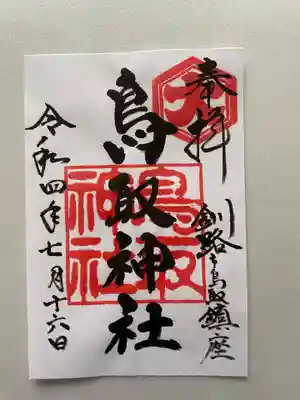 奉拝
釧路之鳥取鎮座
鳥取神社
鳥取神社
令和四年七月十六日